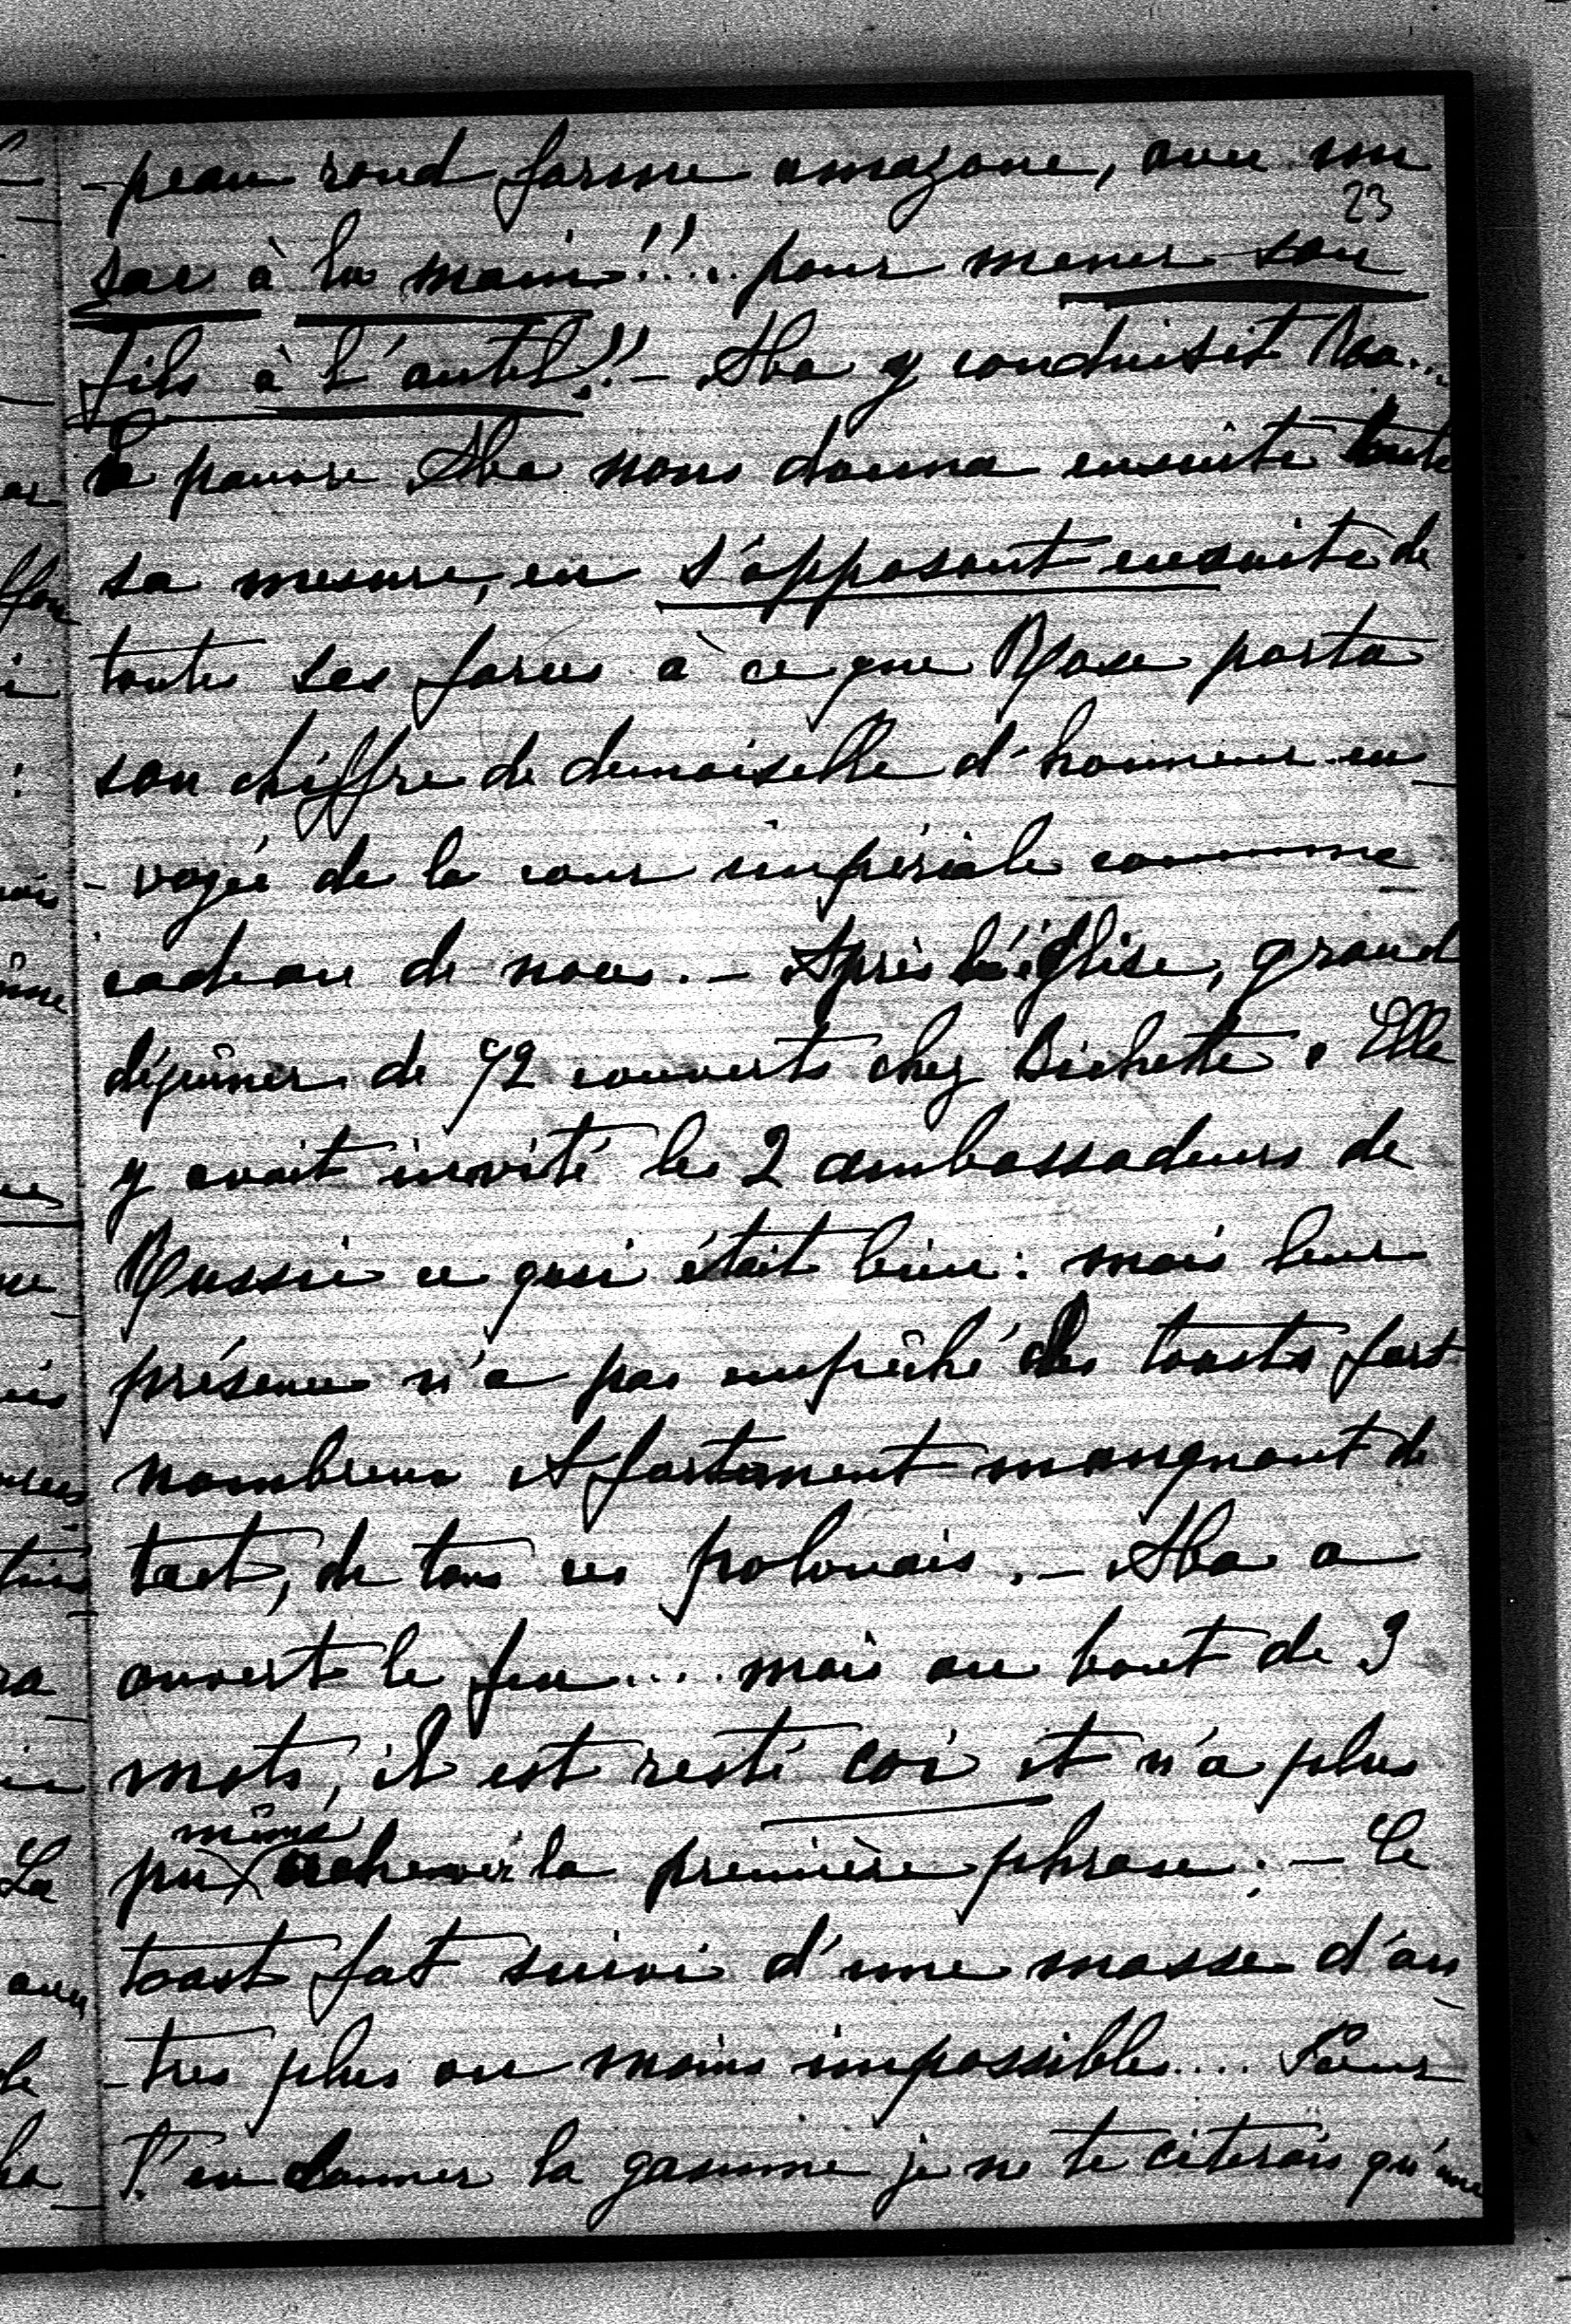 -peau rond forme amazone, avec un
23
sac à la main!!... pour mener son
fils à l'autel!!- Aba y conduisit
le pauvre Aba nous donna ensuite toute
sa mesure, en s'opposant ensuite de
toutes ses forces à ce que Rose porta
son chiffre de demoiselle d'honneur en-
-voyée de la cour impériale comme
cadeau de noces.- Après l'église, grand
déjeûner de 72 couverts chez Bichette. Elle
y avait invité les 2 ambassadeurs de
Russie ce qui était bien: mais leur
présence n'a pas empêché des toasts fort
nombreux et fortement manquant de
tact, de tous ces polonais.- Aba a
ouvert le feu.... mais au bout de 3
mots, il est resté coi et n'a plus
pu même achever la première phrase;- Ce
toast fut suivi d'une masse d'au-
-tres plus ou moins impossibles.... Pour
t'en donner la gamme je ne te citerais qu'une